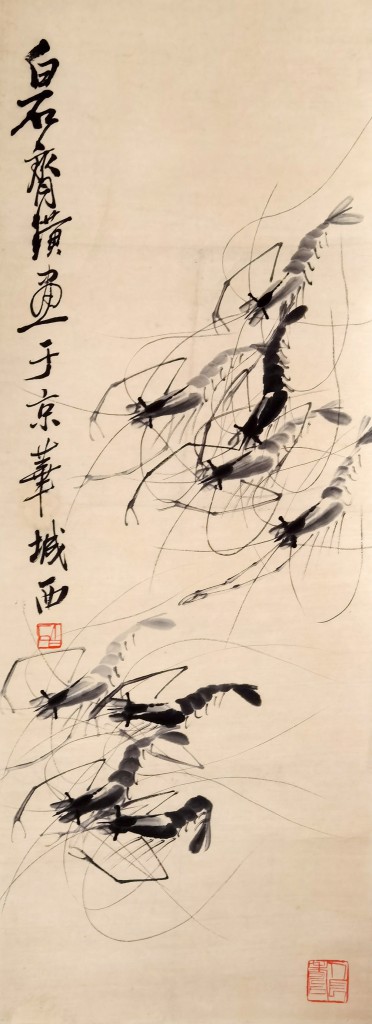 白石齊璜畫于京華城西